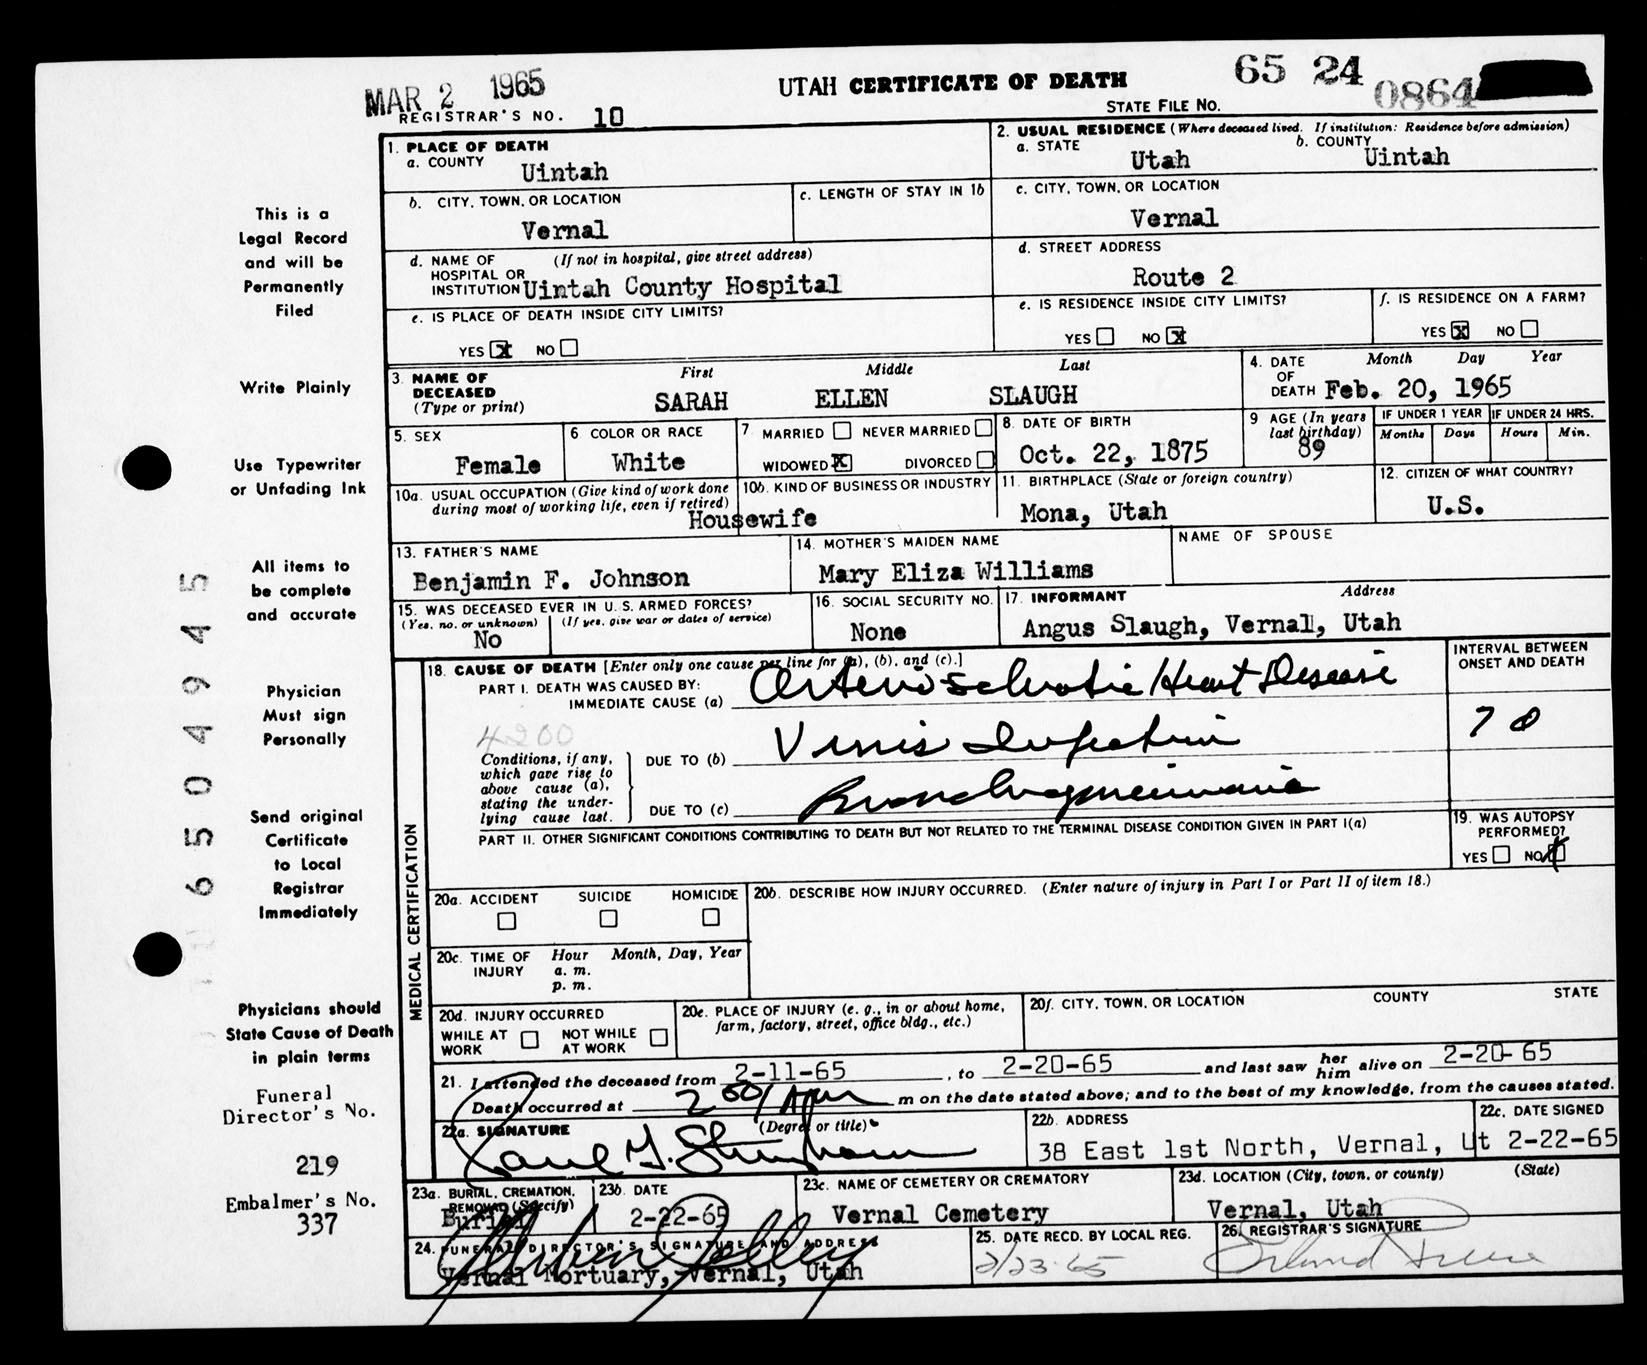 MAR 2 1965
UTAH CERTIFICATE OF DEATH
65 24 0864
REGISTRAR'S NO. 10
STATE FILE NO.
1. PLACE OF DEATH
a. COUNTY
Uintah
2. USUAL RESIDENCE (Where deceased lived. If institution: Residence before admission)
a. STATE
Utah
b. COUNTY
Uintah
b. CITY, TOWN, OR LOCATION
Vernal
c. LENGTH OF STAY IN 1b
c. CITY, TOWN, OR LOCATION
Vernal
d. NAME OF HOSPITAL OR INSTITUTION (If not in hospital, give street address)
Uintah County Hospital
d. STREET ADDRESS
Route 2
e. IS PLACE OF DEATH INSIDE CITY LIMITS?
YES X NO
e. IS RESIDENCE INSIDE CITY LIMITS?
YES NO X
f. IS RESIDENCE ON A FARM?
YES X NO
3. NAME OF DECEASED (Type or print)
First Middle Last
SARAH ELLEN SLAUGH
4. DATE OF DEATH Month Day Year
Feb. 20, 1965
5. SEX
Female
6 COLOR OR RACE
White
7 MARRIED NEVER MARRIED
WIDOWED X DIVORCED
8. DATE OF BIRTH
Oct. 22, 1875
9 AGE (In years last birthday)
89
IF UNDER 1 YEAR
Months Days
IF UNDER 24 HRS.
Hours Min.
10a. USUAL OCCUPATION (Give kind of work done during most of working life, even if retired)
Housewife
10b. KIND OF BUSINESS OR INDUSTRY
11. BIRTHPLACE (State or foreign country)
Mona, Utah
12. CITIZEN OF WHAT COUNTRY?
U.S.
13. FATHER'S NAME
Benjamin F. Johnson
14. MOTHER'S MAIDEN NAME
Mary Eliza Williams
NAME OF SPOUSE
15. WAS DECEASED EVER IN U. S. ARMED FORCES?
(Yes, no, or unknown) (If yes, give war or dates of service)
No
16. SOCIAL SECURITY NO.
None
17. INFORMANT Address
Angus Slaugh, Vernal, Utah
18. CAUSE OF DEATH [Enter only one cause per line for (a), (b), and (c).]
INTERVAL BETWEEN ONSET AND DEATH
PART I. DEATH WAS CAUSED BY:
IMMEDIATE CAUSE (a) Arteriosclerotic Heart Disease
4200
Conditions, if any, which gave rise to above cause (a), stating the underlying cause last.
DUE TO (b) Virus Infection
7 D
DUE TO (c) Bronchopneumonia
PART II. OTHER SIGNIFICANT CONDITIONS CONTRIBUTING TO DEATH BUT NOT RELATED TO THE TERMINAL DISEASE CONDITION GIVEN IN PART I(a)
19. WAS AUTOPSY PERFORMED?
YES NO X
MEDICAL CERTIFICATION
20a. ACCIDENT SUICIDE HOMICIDE
20b. DESCRIBE HOW INJURY OCCURRED. (Enter nature of injury in Part I or Part II of item 18.)
20c. TIME OF INJURY Hour Month, Day, Year
a. m.
p. m.
20d. INJURY OCCURRED
WHILE AT WORK NOT WHILE AT WORK
20e. PLACE OF INJURY (e. g., in or about home, farm, factory, street, office bldg., etc.)
20f. CITY, TOWN, OR LOCATION COUNTY STATE
21. I attended the deceased from 2-11-65, to 2-20-65 and last saw her him alive on 2-20-65
Death occurred at 2 00/ Am m on the date stated above; and to the best of my knowledge, from the causes stated.
22a. SIGNATURE (Degree or title)
Paul G. Stringham
22b. ADDRESS
38 East 1st North, Vernal, Ut
22c. DATE SIGNED
2-22-65
23a. BURIAL, CREMATION, REMOVAL (Specify)
Burial
23b. DATE
2-22-65
23c. NAME OF CEMETERY OR CREMATORY
Vernal Cemetery
23d. LOCATION (City, town, or county) (State)
Vernal, Utah
24. FUNERAL DIRECTOR'S SIGNATURE AND ADDRESS
Vernal Mortuary, Vernal, Utah
25. DATE RECD. BY LOCAL REG.
2/23-65
26. REGISTRAR'S SIGNATURE
This is a
Legal Record
and will be
Permanently
Filed
Write Plainly
Use Typewriter
or Unfading Ink
All items to
be complete
and accurate
Physician
Must sign
Personally
Send original
Certificate
to Local
Registrar
Immediately
Physicians should
State Cause of Death
in plain terms
Funeral
Director's No.
219
Embalmer's No.
337
65 04945